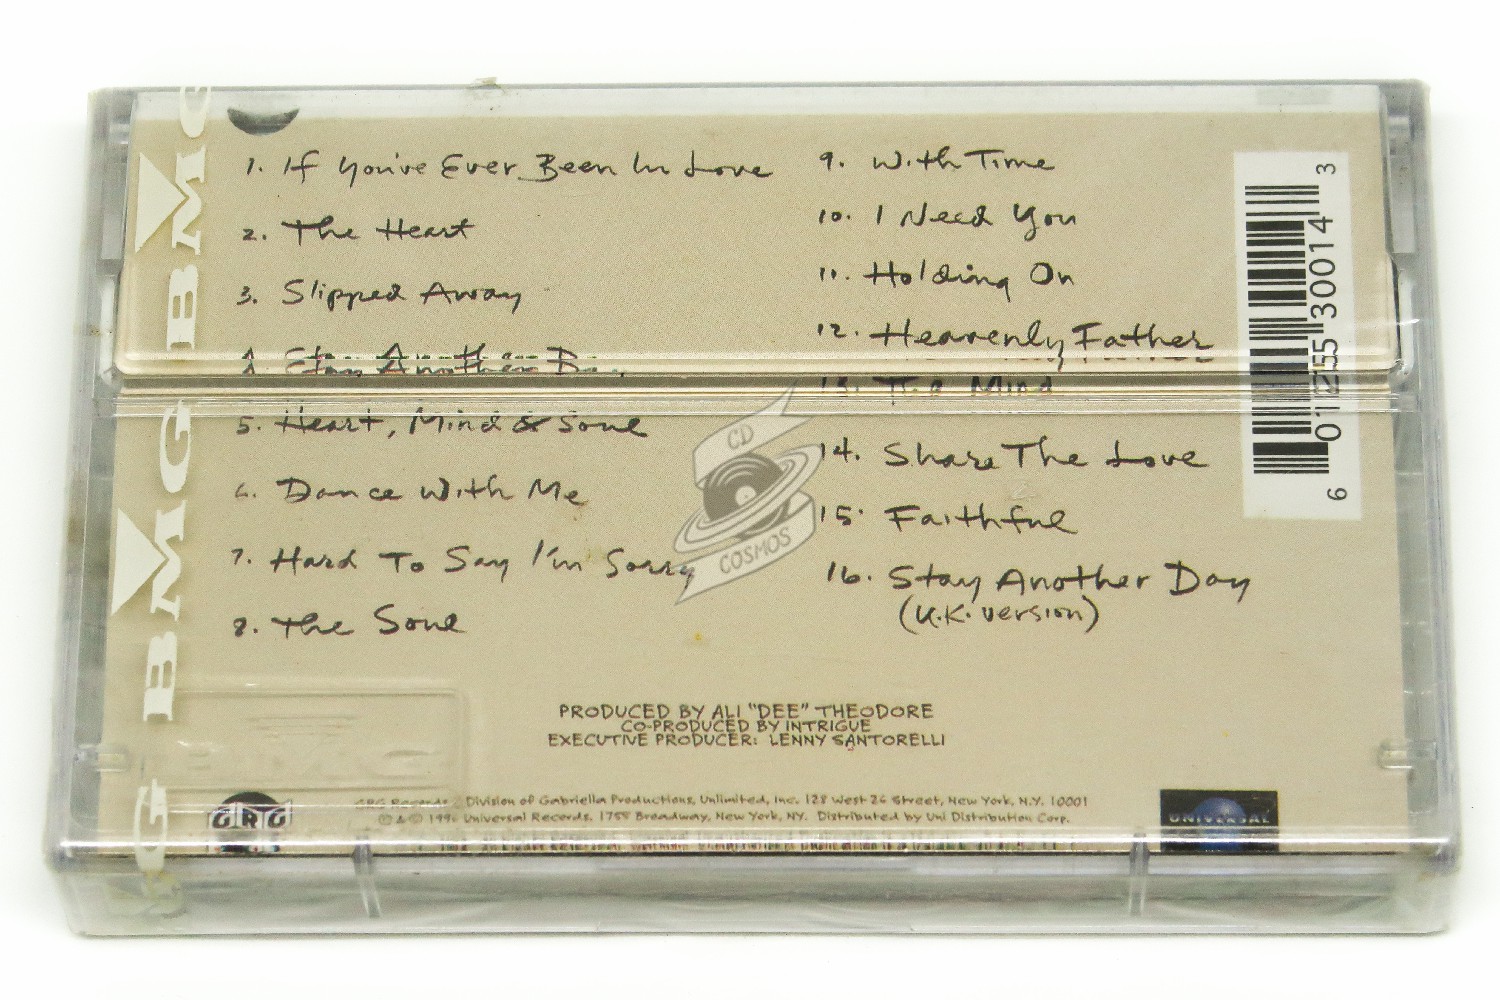 1. If You've Ever Been In Love
2. The Heart
3. Slipped Away
4. Stay Another Day
5. Heart, Mind & Soul
6. Dance With Me
7. Hard To Say I'm Sorry
8. The Soul
9. With Time
10. I Need You
11. Holding On
12. Heavenly Father
13. The Mind
14. Share The Love
15. Faithful
16. Stay Another Day
(U.K. version)
PRODUCED BY ALI "DEE" THEODORE
CO-PRODUCED BY INTRIGUE
EXECUTIVE PRODUCER: LENNY SANTORELLI
GRG Records Division of Gabriella Productions, Unlimited, Inc. 128 West 26 Street, New York, N.Y. 10001
℗ & © 1996 Universal Records, 1755 Broadway, New York, NY. Distributed by Uni Distribution Corp.
GRG
UNIVERSAL
BMG
BMG
G
6 01255 30014 3
CD
COSMOS